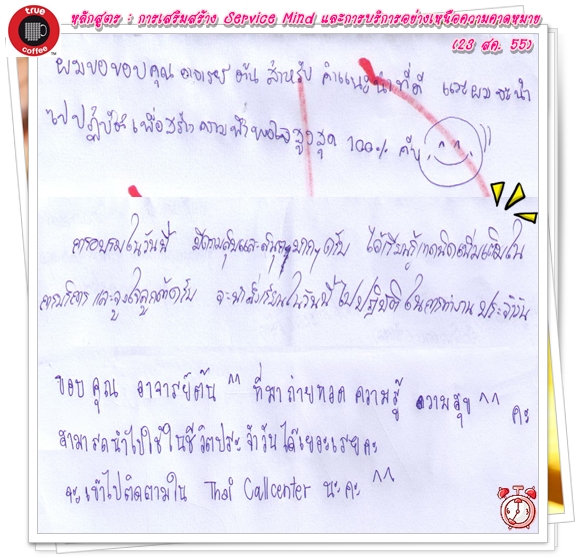 true
coffee
หลักสูตร : การเสริมสร้าง Service Mind และการบริการอย่างเหนือความคาดหมาย
(23 สค. 55)
ผมขอขอบคุณ อาจารย์ ต้น สำหรับ คำแนะนำที่ดี และผมจะนำ
ไปปฏิบัติ เพื่อสร้าง ความพึงพอใจสูงสุด 100% ครับ
การอบรมในวันนี้ มีความสุขและสนุกมากๆครับ ได้เรียนรู้เทคนิคเพิ่มเติมใน
การบริการ และจูงใจลูกค้าครับ จะนำสิ่งที่เรียนในวันนี้ ไปปฏิบัติ ในการทำงาน ประจำวัน
ขอบ คุณ อาจารย์ต้น ^^ ที่มา ถ่ายทอด ความรู้ ความสุข ^^ คะ
สามารถนำไปใช้ในชีวิตประจำวันได้เยอะเลยคะ
จะเข้าไปติดตามใน Thai Callcenter นะคะ ^^